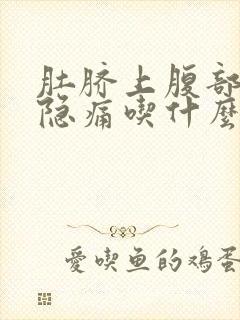 肚脐上腹部
隐痛喫什麼
愛喫鱼的鸡蛋